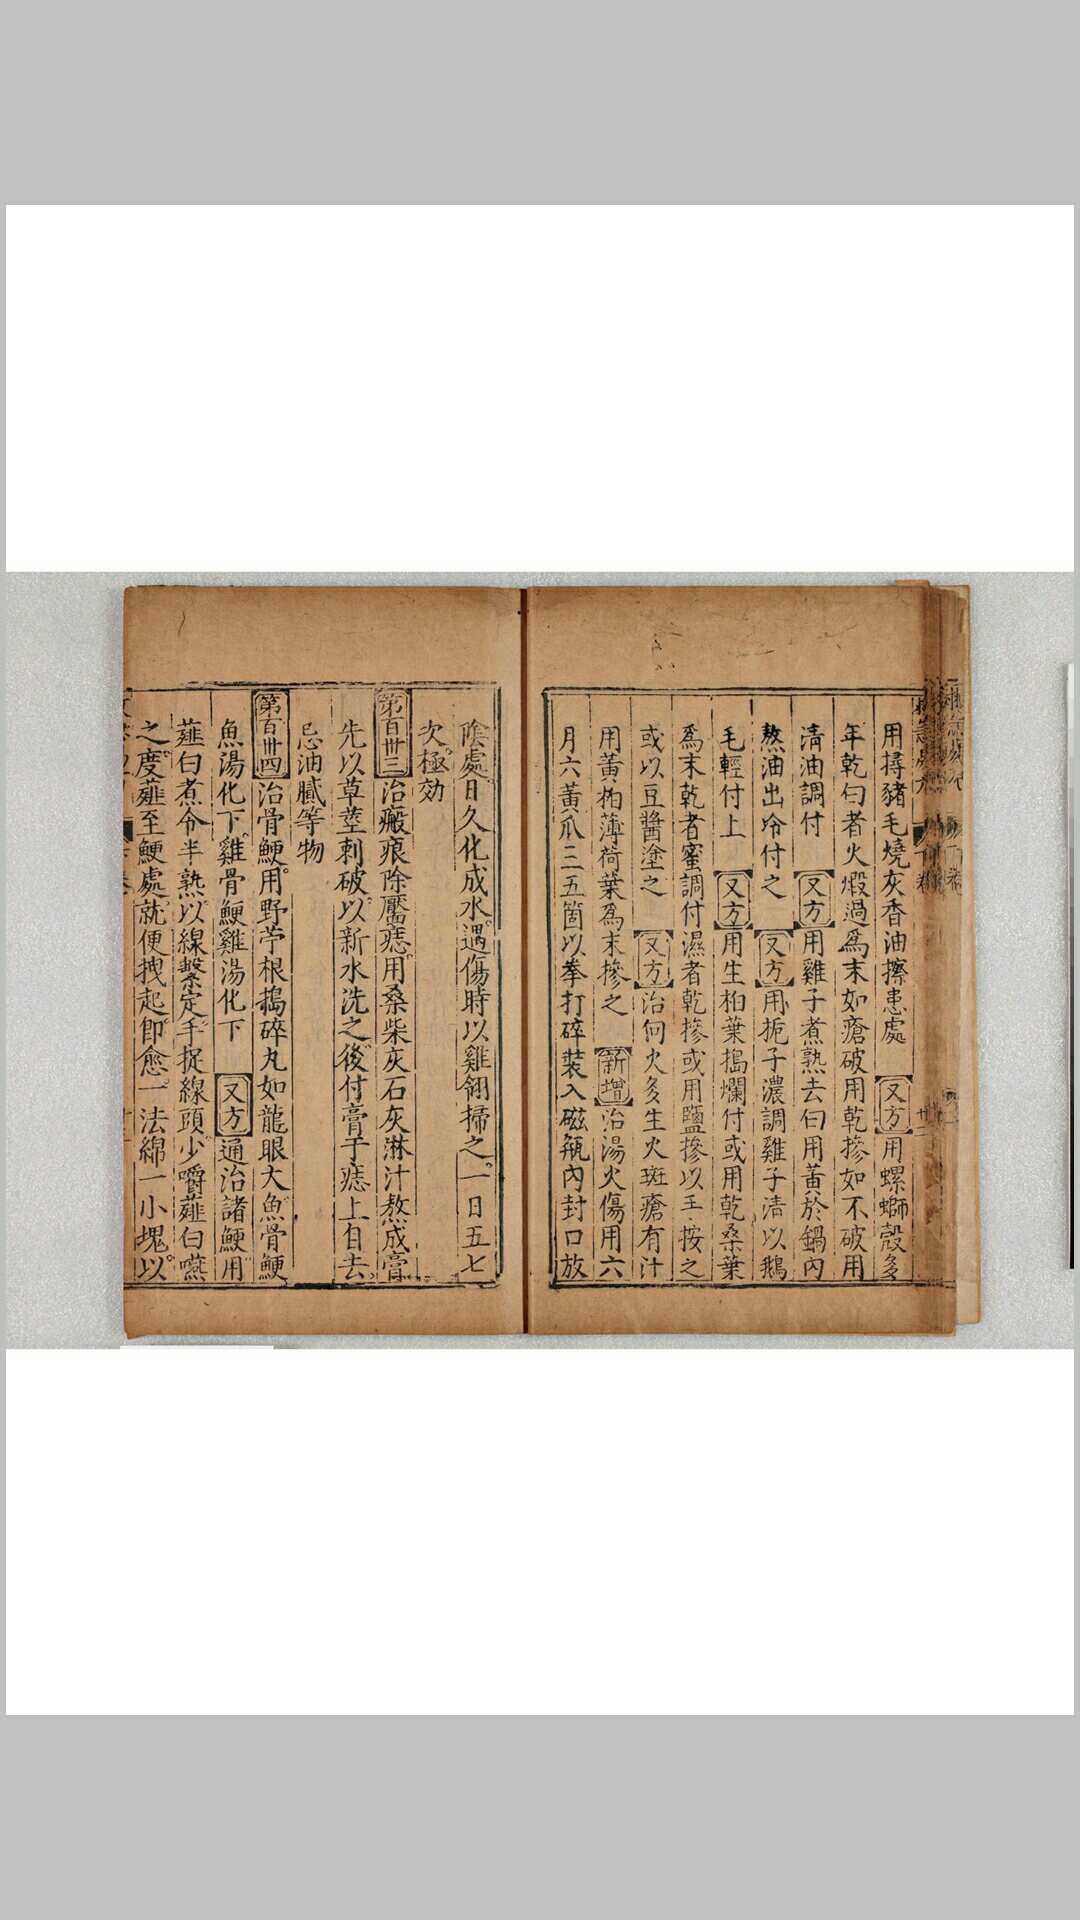 用撏豬毛燒灰香油擦患處 又方 用螺螄殼多
年乾白者火煅過爲末如瘡破用乾摻如不破用
清油調付 又方 用雞子煮熟去白用黃於鍋內
熬油出冷付之 又方 用梔子濃調雞子清以鵝
毛輕付上 又方 用生柏葉搗爛付或用乾桑葉
爲末乾者蜜調付濕者乾摻或用鹽摻以手按之
或以豆醬塗之 又方 治何火多生火斑瘡有汁
用黃柏薄荷葉爲末摻之 新增 治湯火傷用六
月六黃瓜三五箇以拳打碎裝入磁瓶內封口放
陰處日久化成水遇傷時以雞翎掃之一日五七
次極効
第百卅三 治瘢痕除靨痣用桑柴灰石灰淋汁熬成膏
先以草莖刺破以新水洗之後付膏于痣上自去
忌油膩等物
第百卅四 治骨鯁用野苧根搗碎丸如龍眼大魚骨鯁
魚湯化下雞骨鯁雞湯化下 又方 通治諸鯁用
薤白煮令半熟以線繫定手捉線頭少嚼薤白嚥
之度薤至鯁處就便拽起即愈一法綿一小塊以